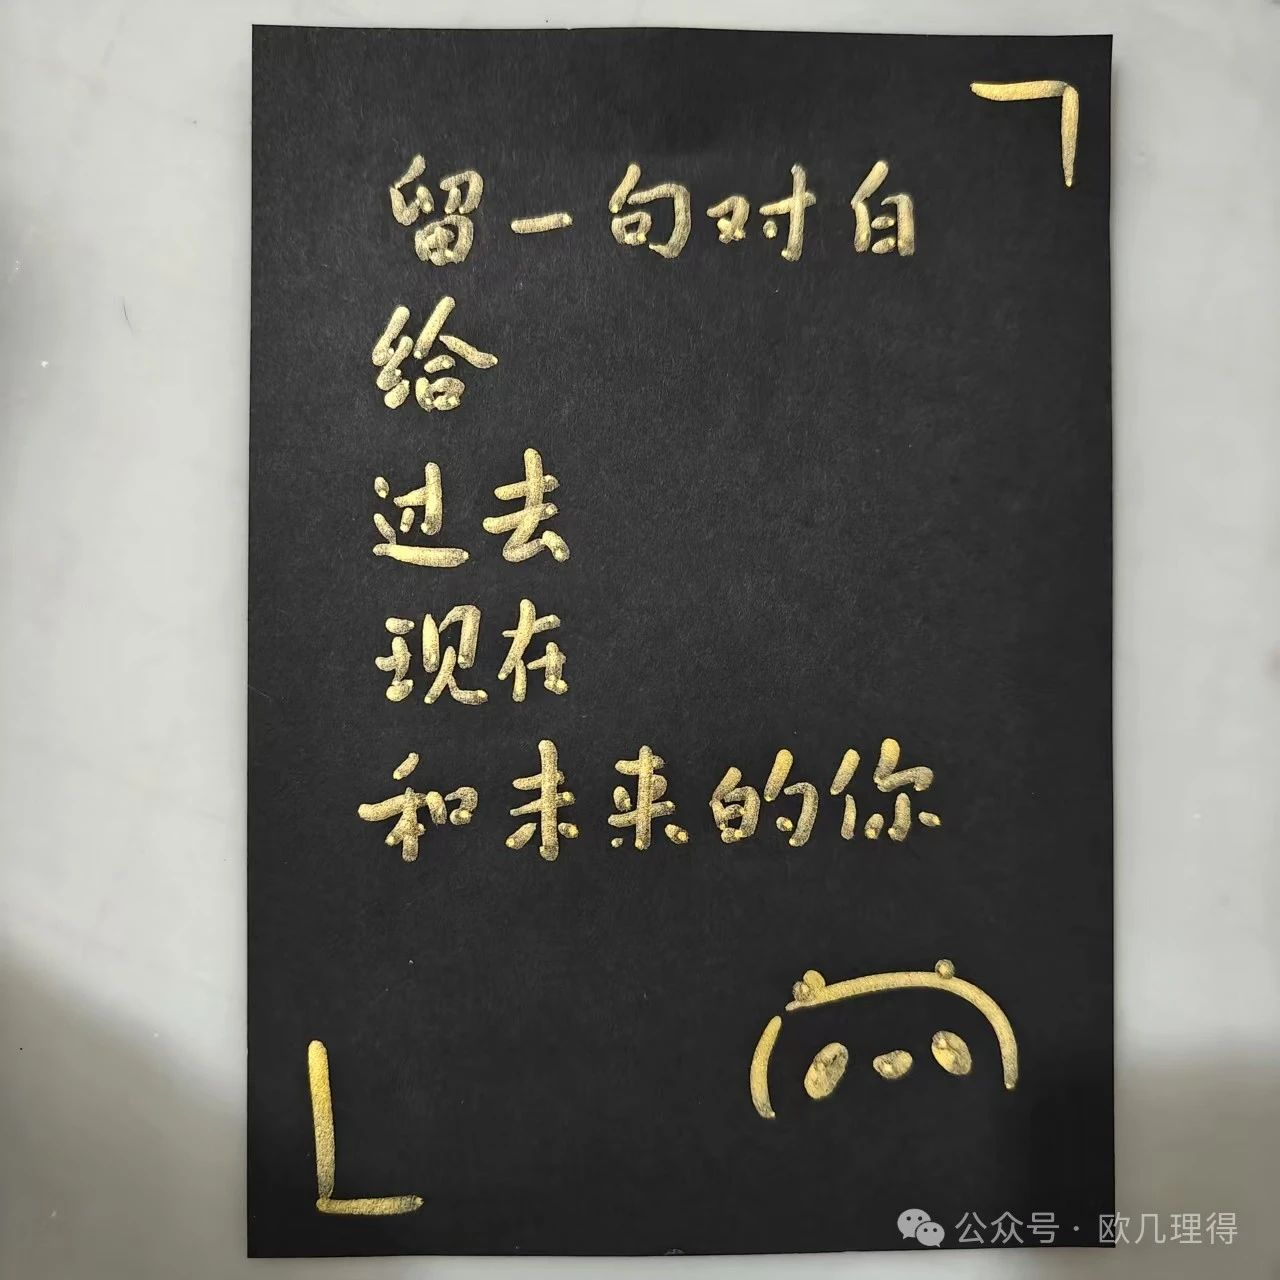 留一句对白
给
过去
现在
和未来的你
公众号·欧几理得